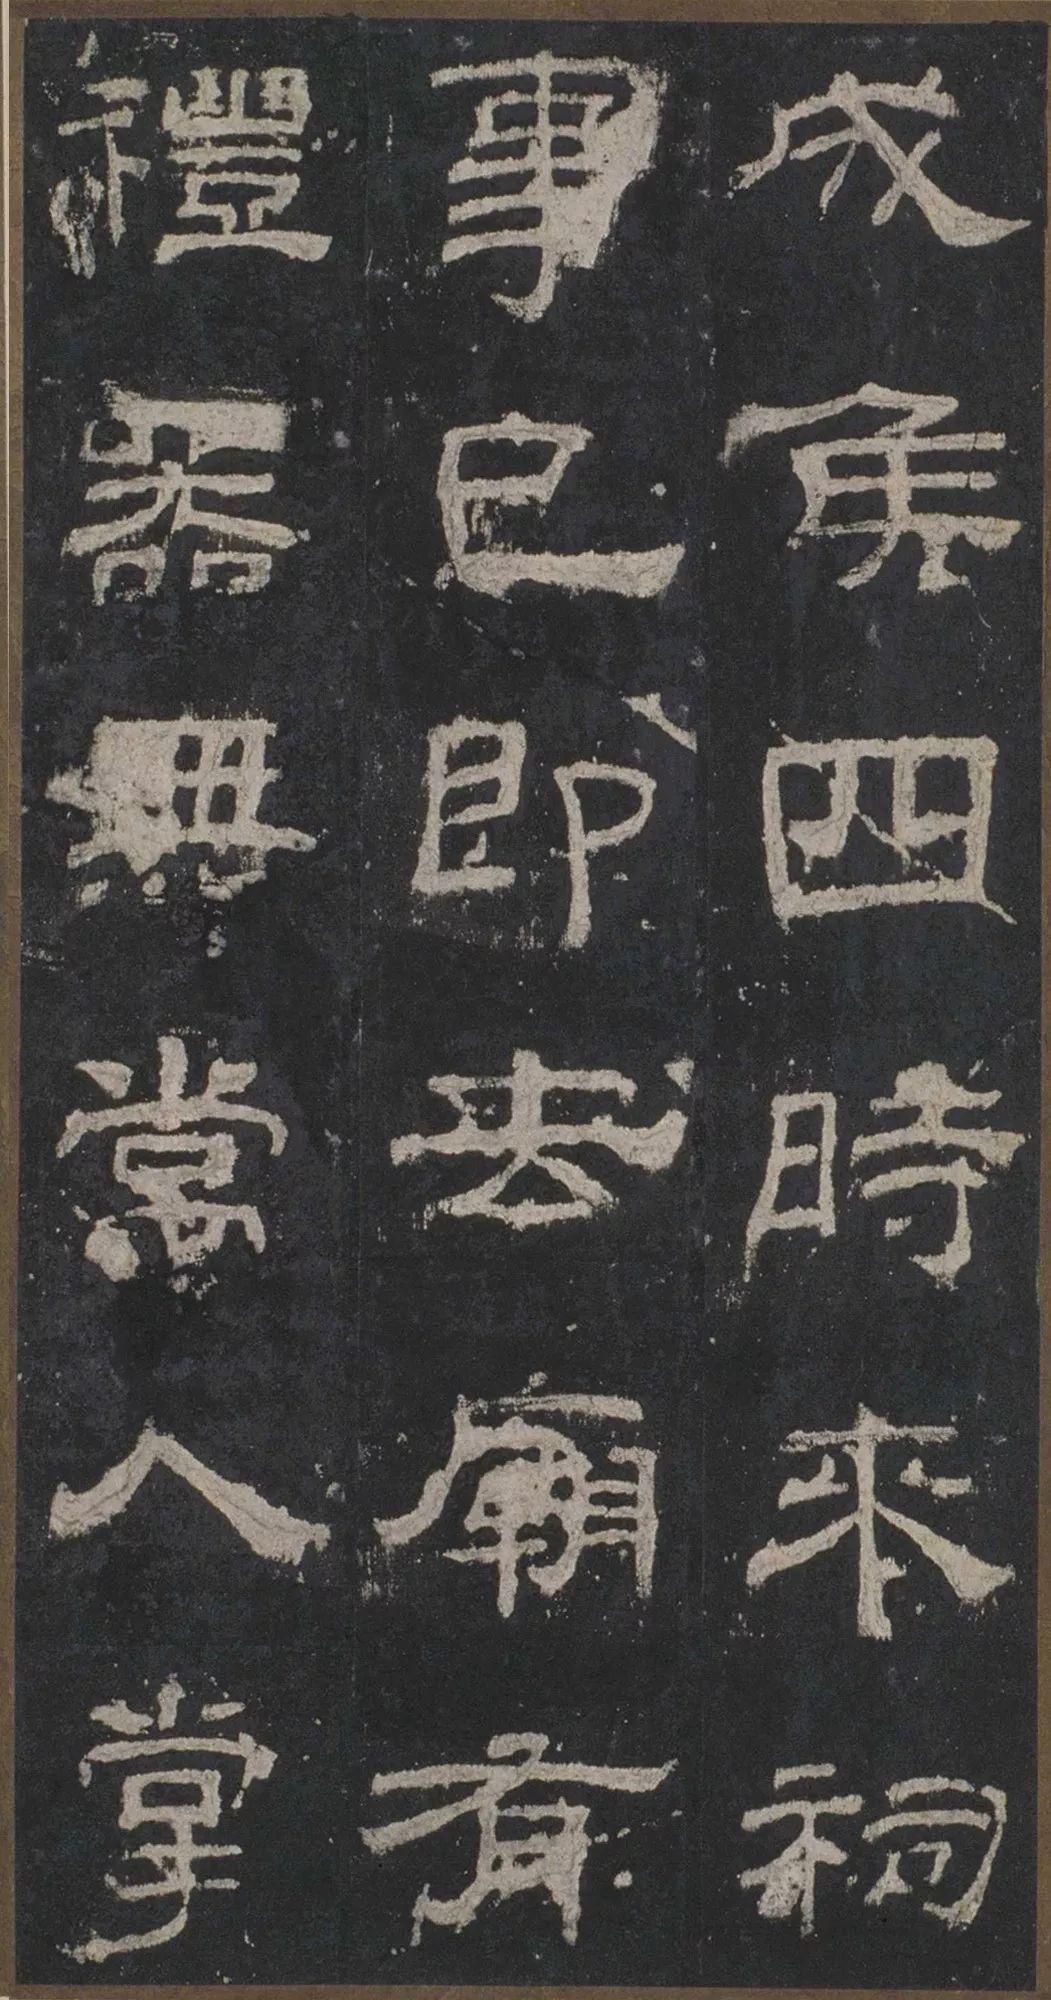 成侯四時来祠
事已即去廟有
禮器無常人掌